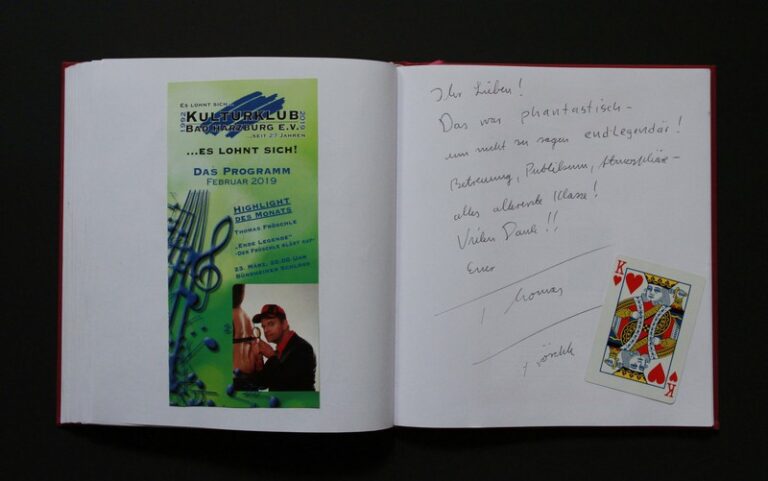 ES LOHNT SICH...
1992
KULTURKLUB
2019
BAD HARZBURG E.V.
...SEIT 27 JAHREN
...ES LOHNT SICH!
DAS PROGRAMM
FEBRUAR 2019
HIGHLIGHT
DES MONATS
THOMAS FRÖSCHLE
„ENDE LEGENDE“
-DER FRÖSCHLE KLÄRT AUF-
23. MÄRZ, 20.00 UHR
BÜNDHEIMER SCHLOSS
Ihr Lieben!
Das war phantastisch -
um nicht zu sagen endlegendär!
Betreuung, Publikum, Atmosphäre -
alles allererste Klasse!
Vielen Dank!!
Euer
Thomas
Fröschle
K
K